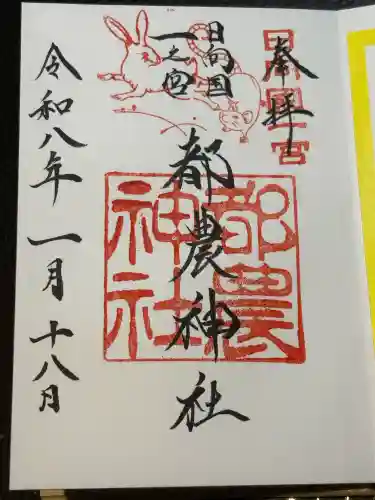 奉拝
日向国一宮
日向国
一之宮
都農神社
都農神社
令和八年一月十八日